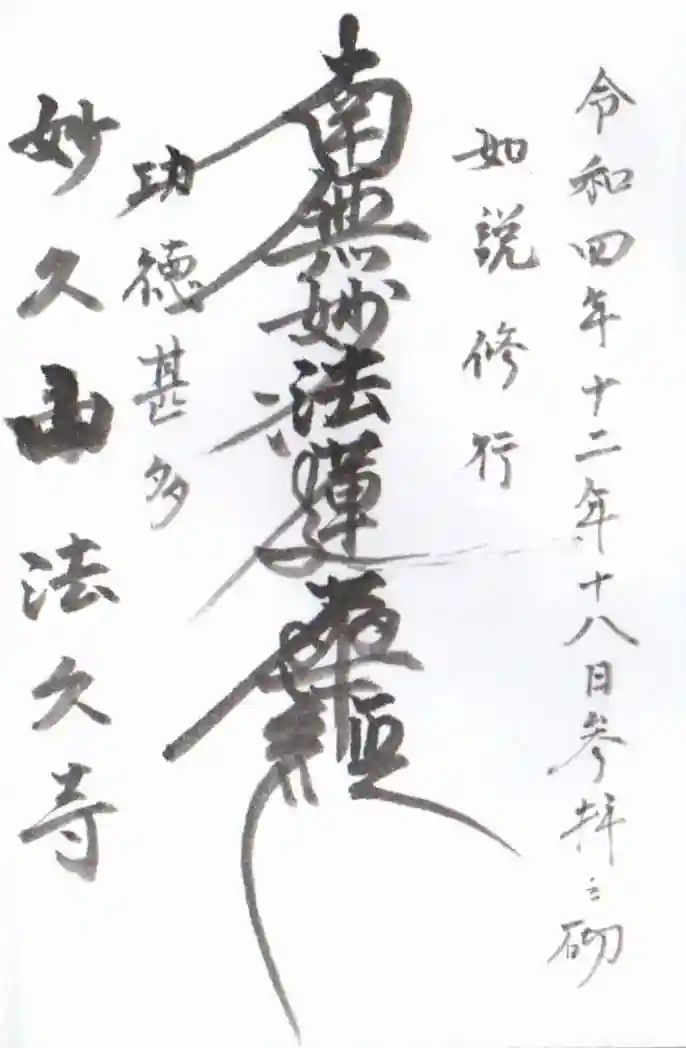 令和四年十二年十八日参拝之砌
如説修行
南無妙法蓮華経
功徳甚多
妙久山法久寺